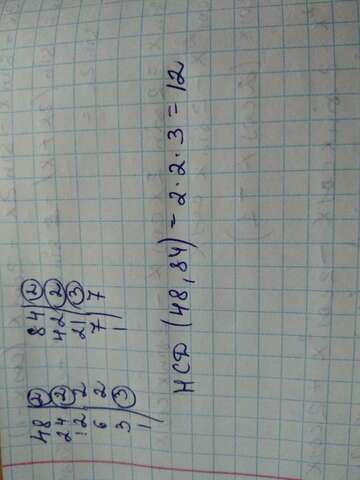 48 | 2 84 | 2
24 | 2 42 | 2
12 | 2 21 | 3
6 | 2 7 | 7
3 | 3 1
1
НСД (48, 84) = 2 · 2 · 3 = 12